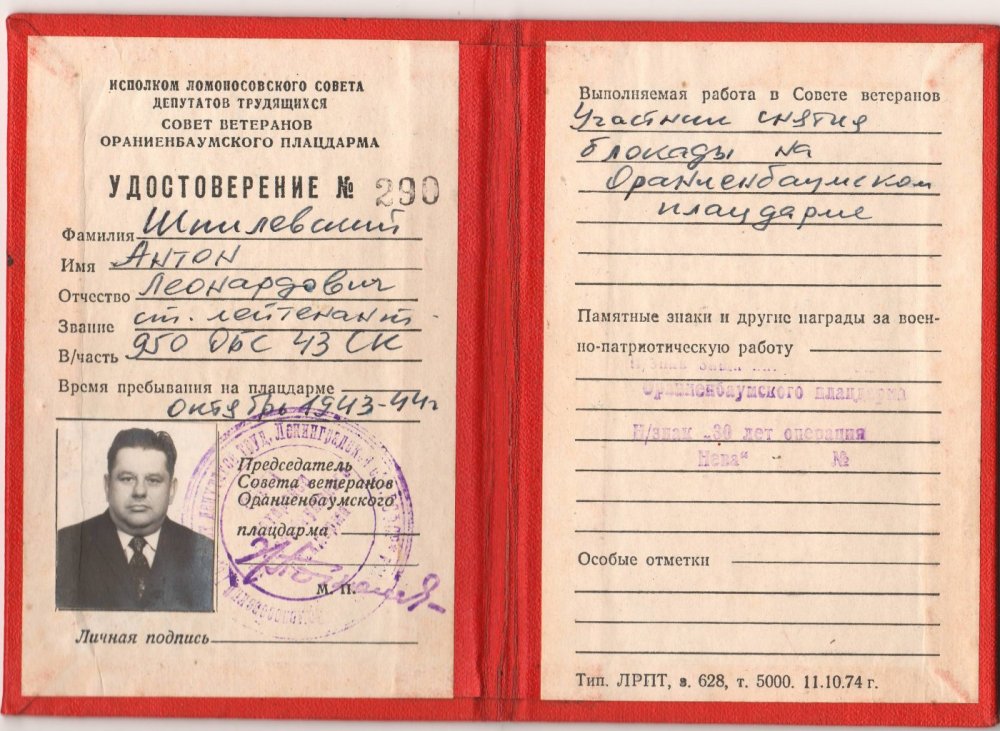 ИСПОЛКОМ ЛОМОНОСОВСКОГО СОВЕТА
ДЕПУТАТОВ ТРУДЯЩИХСЯ
СОВЕТ ВЕТЕРАНОВ
ОРАНИЕНБАУМСКОГО ПЛАЦДАРМА
УДОСТОВЕРЕНИЕ № 290
Фамилия Шпилевский
Имя Антон
Отчество Леонардович
Звание ст. лейтенант
В/часть 950 ОБС 43 СК
Время пребывания на плацдарме
октябрь 1943-44г
Председатель
Совета ветеранов
Ораниенбаумского
плацдарма
М. П.
Личная подпись
Выполняемая работа в Совете ветеранов
Участник снятия
блокады на
Ораниенбаумском
плацдарме
Памятные знаки и другие награды за воен-
но-патриотическую работу
Ораниенбаумского плацдарма
Н/знак „30 лет операция
Нева" №
Особые отметки
Тип. ЛРПТ, з. 628, т. 5000. 11.10.74 г.